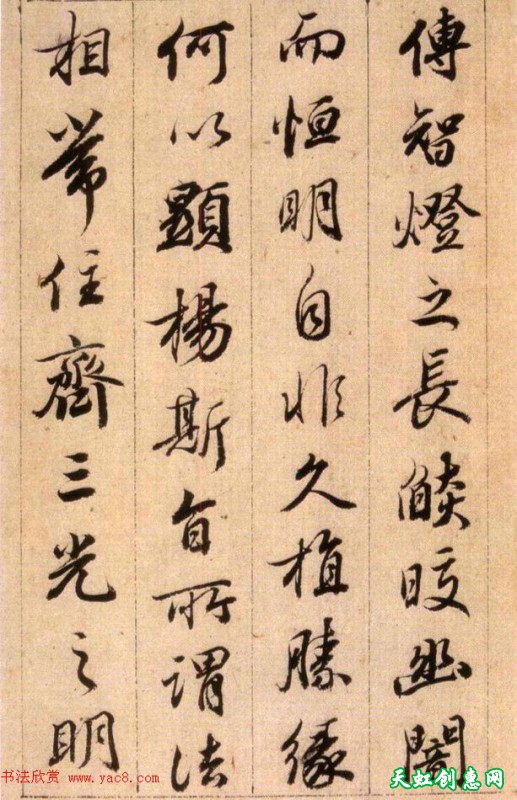 傳智燈之長燄晈幽闇
而恒明自非久植勝緣
何以顯楊斯旨所謂法
相常住齊三光之明
书法欣赏 www.yac8.com
天虹创意网